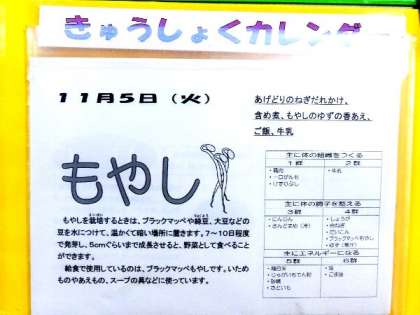 きゅうしょくカレンダー
11月5日（火）
あげどりのねぎだれかけ、
含め煮、もやしのゆずの香あえ、
ご飯、牛乳
もやし
もやしを栽培するときは、ブラックマッペや緑豆、大豆などの
豆を水につけて、温かくて暗い場所に置きます。7～10日程度
で発芽し、5cmぐらいまで成長させると、野菜として食べること
ができます。
給食で使用しているのは、ブラックマッペもやしです。いため
ものやあえもの、スープの具などに使っています。
主に体の組織をつくる
1群 2群
・鶏肉 ・牛乳
主に体の調子を整える
3群 4群
・にんじん ・しょうが
主にエネルギーになる
5群 6群
・じゃがいもでん粉 ・ごま油
・砂糖
・さといも